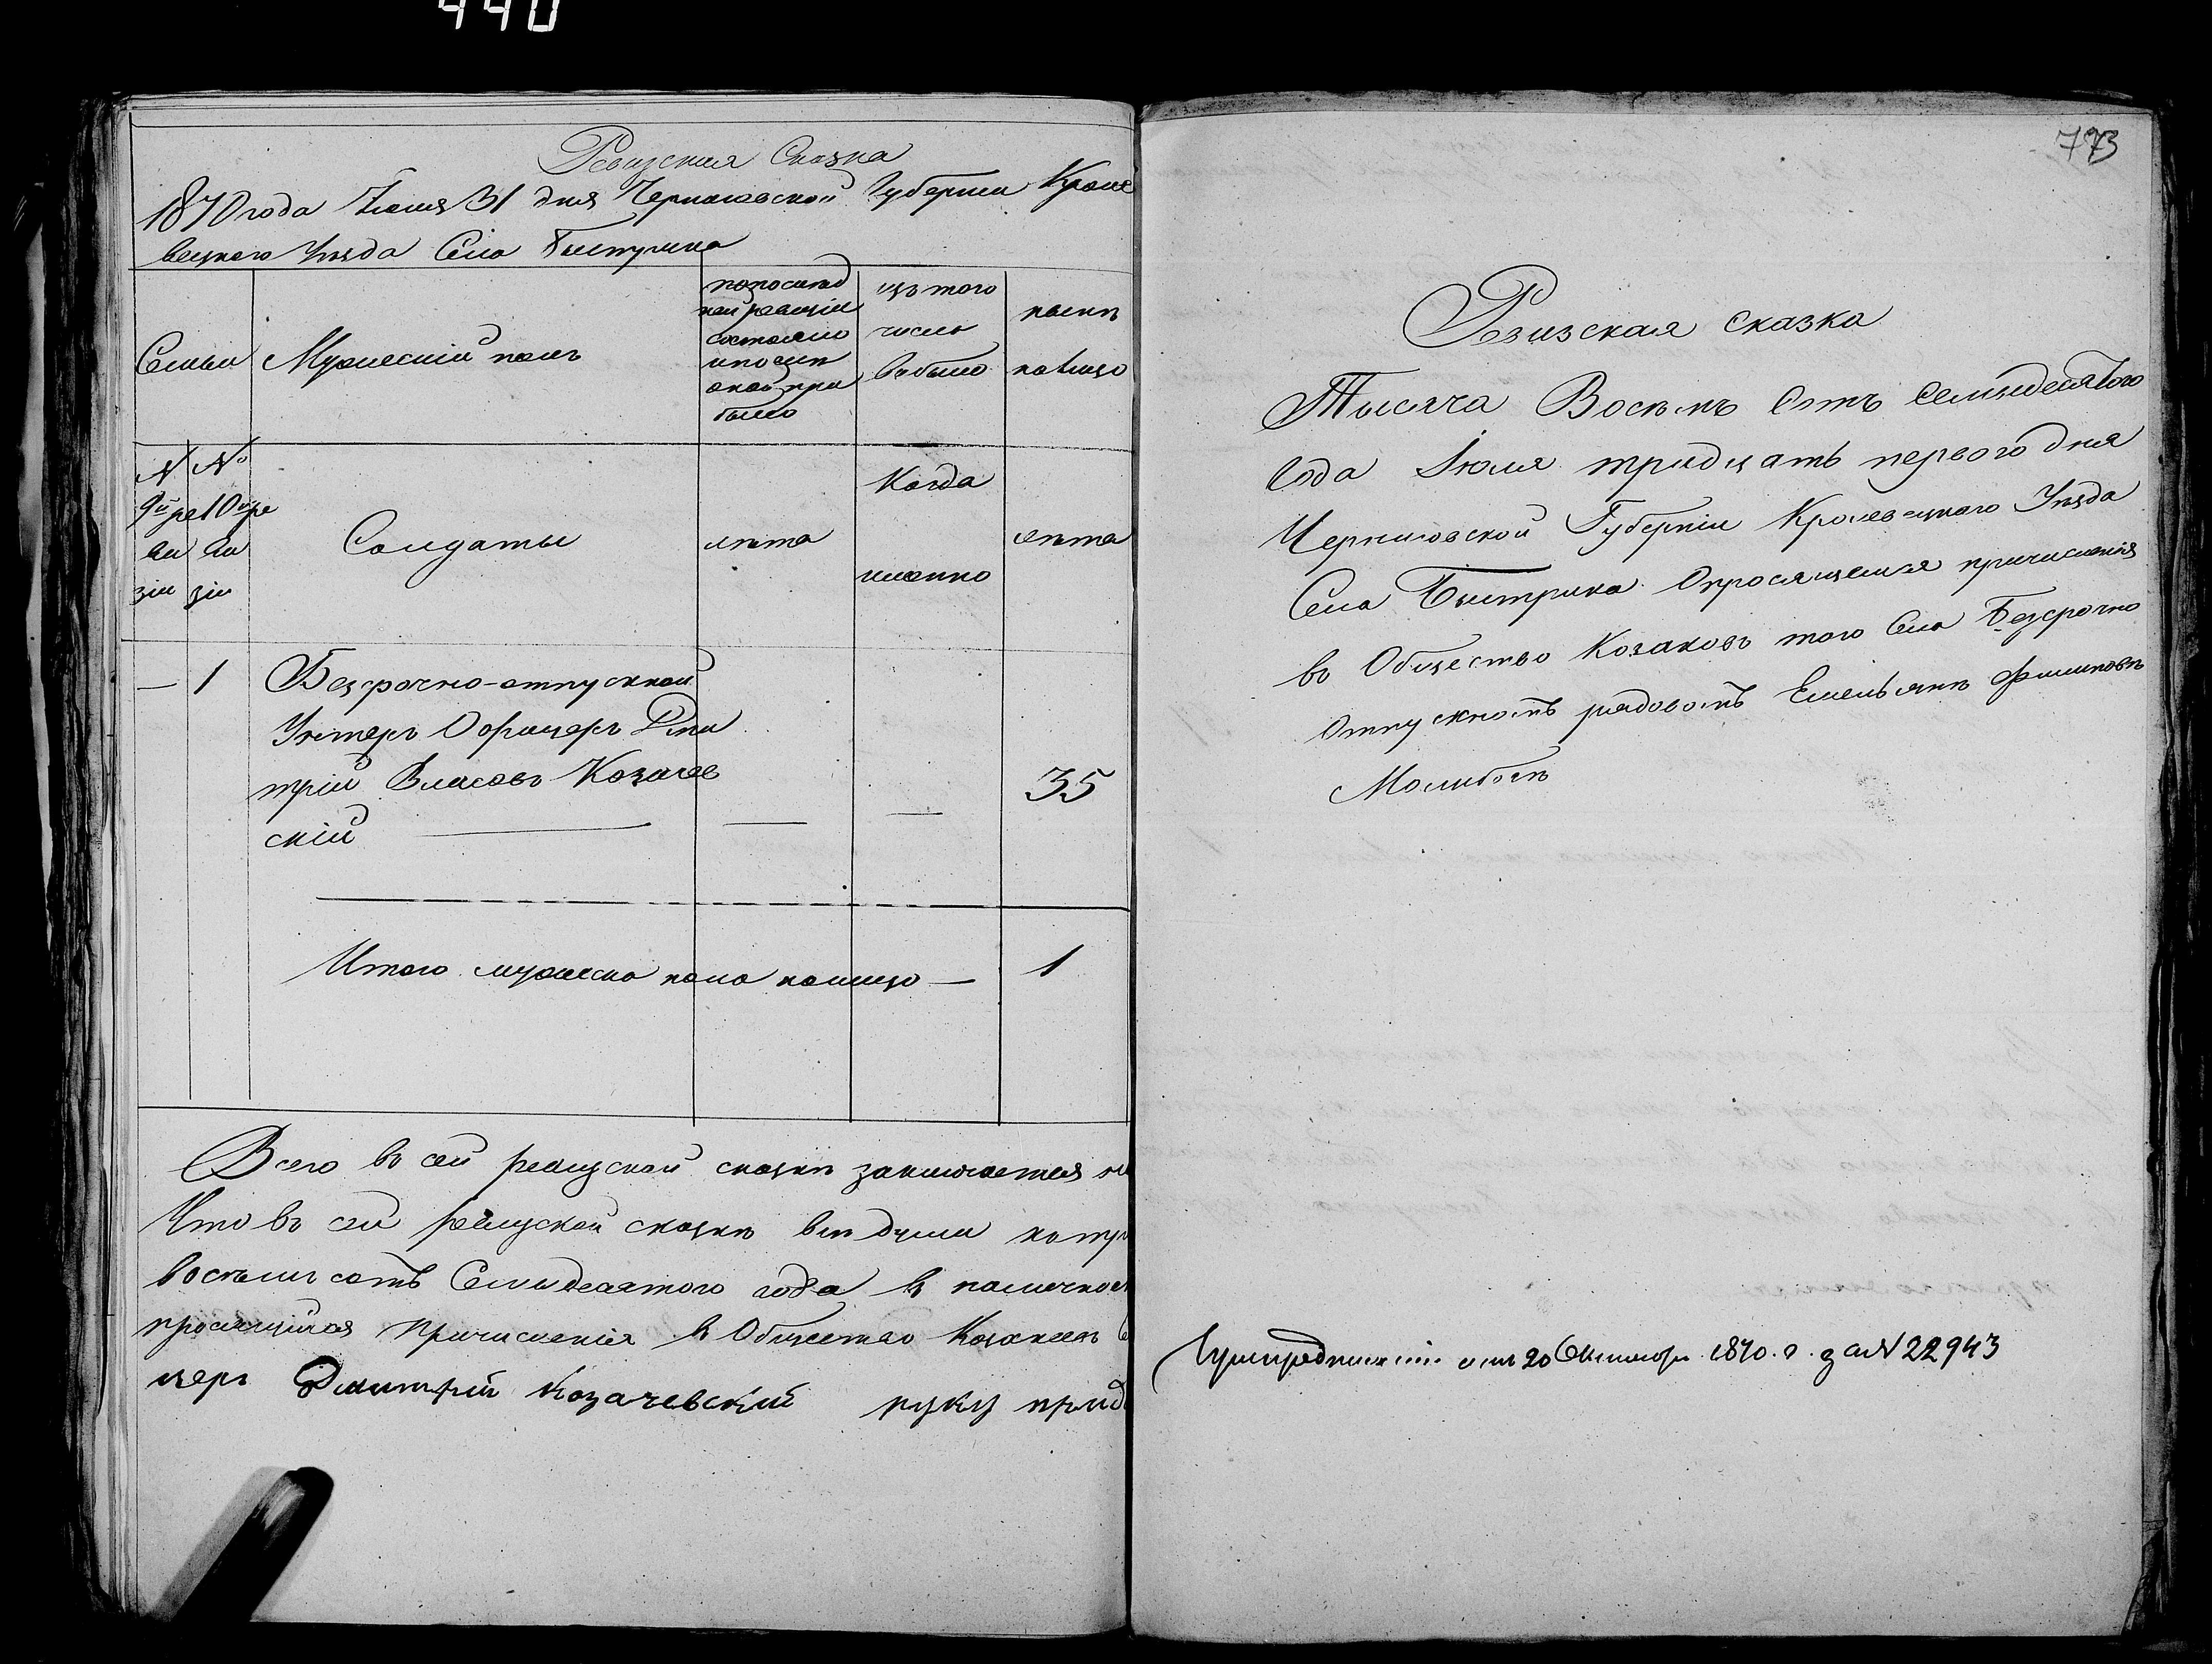 440
Ревизская Сказка
1870 года Июля 31 дня Черниговской Губернии Кроле
вецкаго Уезда Села Быстрика
Семьи
Мужеский полъ
по послед
ней ревизіи
состояло
и после
оной при
было
изъ того
число
выбыло
ныне
налицо
№ №
9й ре 10й ре
ви ви
зіи зіи
Солдаты
лета
Когда
именно
лета
— 1 Безсрочно-отпускной
Унтеръ Офицеръ Дми
трій Власовъ Козачев
скій — — — 35
Итого мужеска пола налицо — 1
Всего въ сей ревизской сказке заключается
Что въ сей ревизской сказке все души
восемьсотъ Семидесятого года въ наличнос
просящійся причисленія въ Общество Козаковъ
церъ Дмитрій Козачевский руку прил
773
Ревизская сказка
Тысяча Восемь Сотъ Семидесятого
Года Іюля тридцать первого дня
Черниговской Губерніи Кролевецкаго Уезда
Села Быстрика О просящемся причисленія
въ Общество Козаковъ того Села Безсрочно
Отпускномъ рядовомъ Емельяне Филиповъ
При предписаніи отъ 20 Октября 1870. г. за № 22943